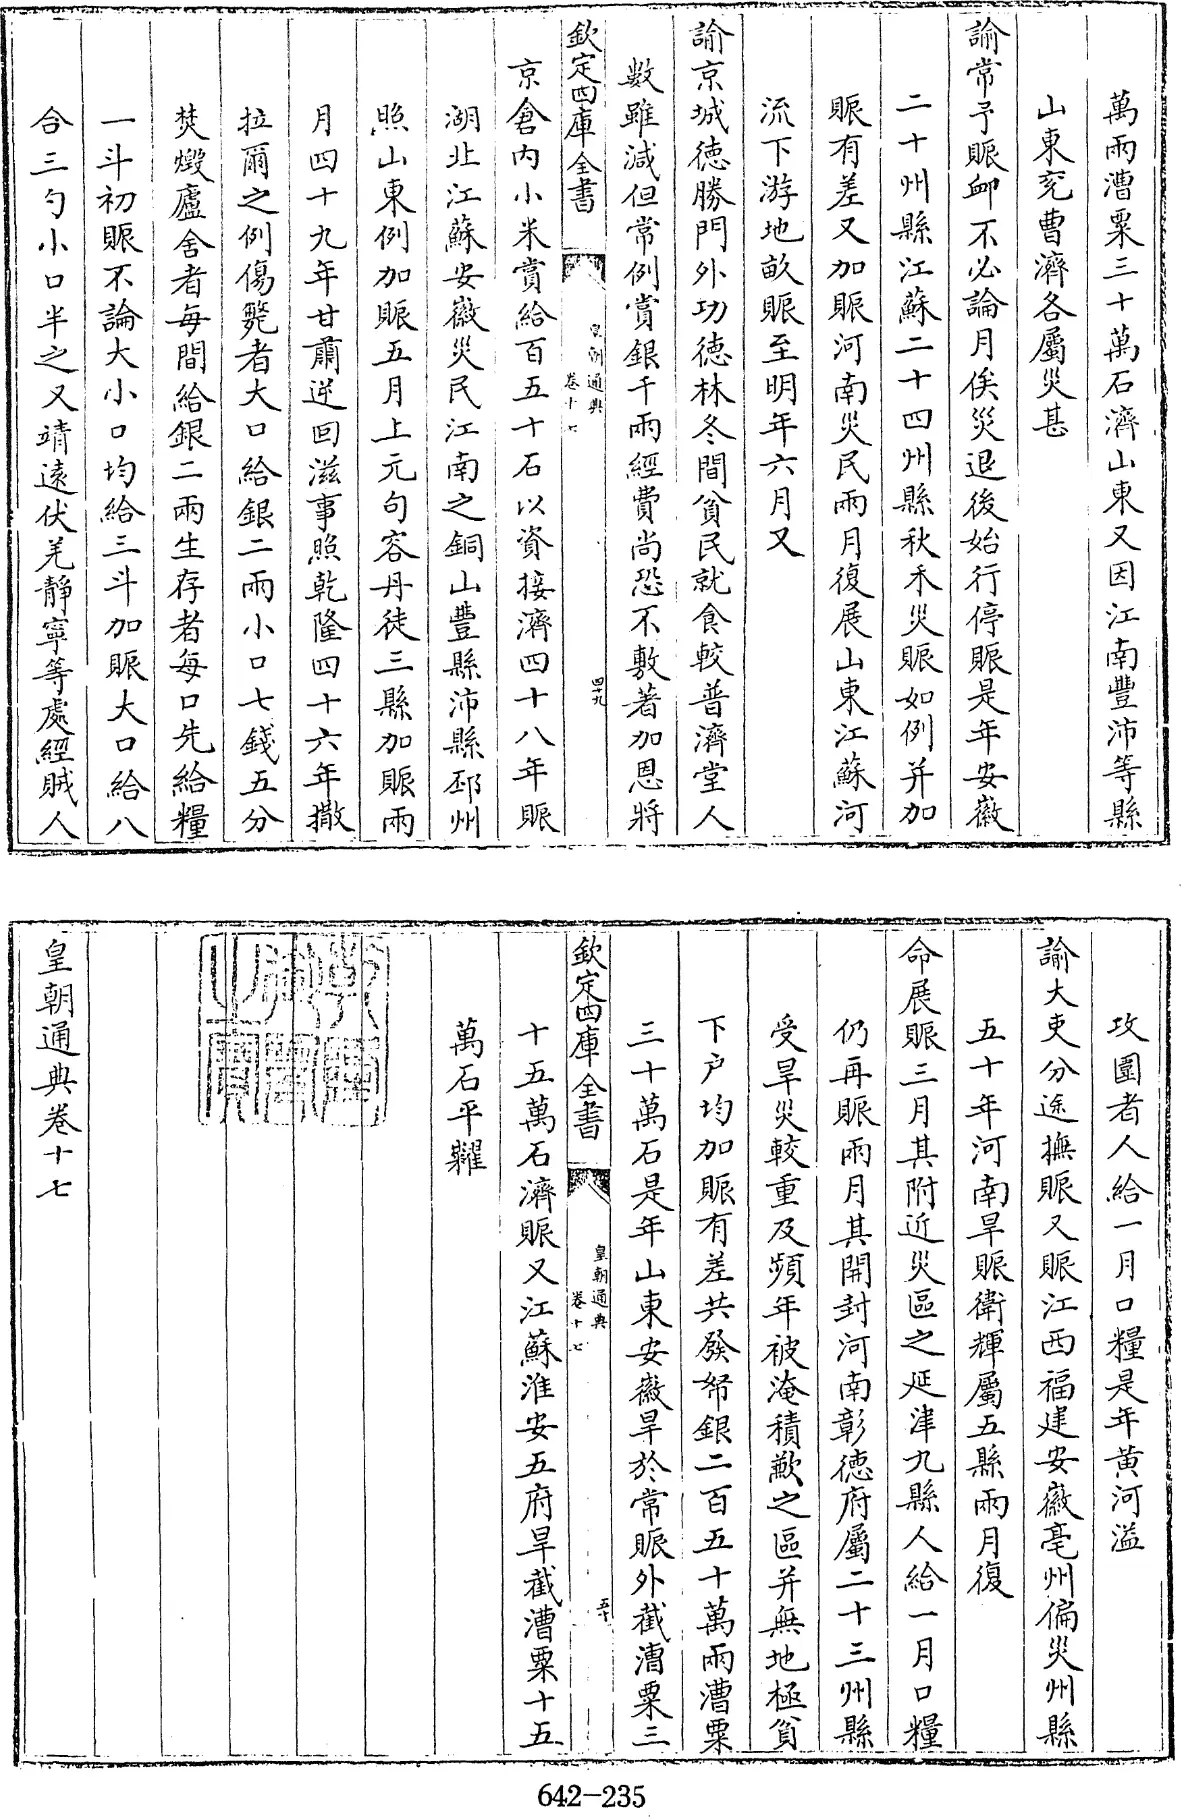 萬兩漕粟三十萬石濟山東又因江南豐沛等縣
山東兖曹濟各屬災甚
諭常予賑䘏不必論月俟災退後始行停賑是年安徽
二十州縣江蘇二十四州縣秋禾災賑如例并加
賑有差又加賑河南災民兩月復展山東江蘇河
流下游地畝賑至明年六月又
諭京城徳勝門外功徳林冬間貧民就食較普濟堂人
數雖減但常例賞銀千兩經費尚恐不敷著加恩將
欽定四庫全書
皇朝通典
卷十七
四十九
京倉内小米賞給百五十石以資接濟四十八年賑
湖北江蘇安徽災民江南之銅山豐縣沛縣邳州
照山東例加賑五月上元句容丹徒三縣加賑兩
月四十九年甘肅逆回滋事照乾隆四十六年撒
拉爾之例傷斃者大口給銀二兩小口七錢五分
焚燬廬舍者每間給銀二兩生存者每口先給糧
一斗初賑不論大小口均給三斗加賑大口給八
合三勺小口半之又靖逺伏羌靜寧等處經賊人
攻圍者人給一月口糧是年黄河溢
諭大吏分途撫賑又賑江西福建安徽亳州偏災州縣
五十年河南旱賑衛輝屬五縣兩月復
命展賑三月其附近災區之延津九縣人給一月口糧
仍再賑兩月其開封河南彰徳府屬二十三州縣
受旱災較重及頻年被淹積歉之區并無地極貧
下户均加賑有差共發帑銀二百五十萬兩漕粟
三十萬石是年山東安徽旱於常賑外截漕粟三
欽定四庫全書
皇朝通典
卷十七
五十
十五萬石濟賑又江蘇淮安五府旱截漕粟十五
萬石平糶
皇朝通典卷十七
642-235